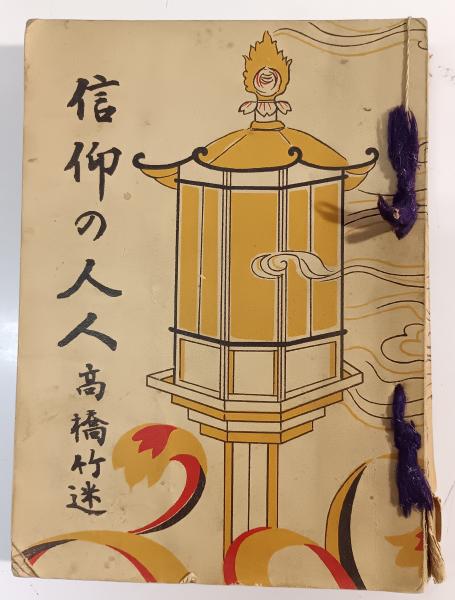 信仰の人人
高橋竹迷